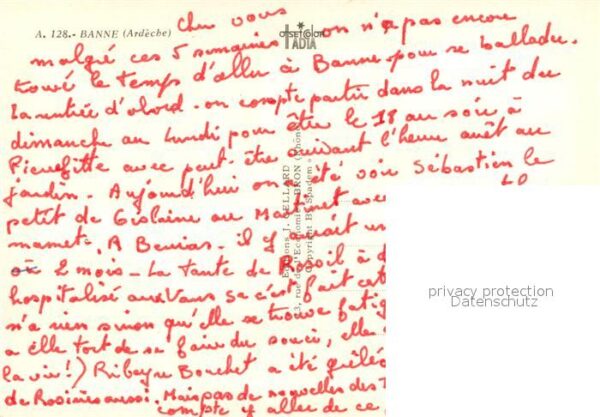 A. 128.- BANNE (Ardèche)
OFSETCOLOR
IADIA
Cher vous
malgré ces 5 semaines on n'a pas encore
trouvé le temps d'aller à Banne pour se ballader.
la rentrée d'abord - on compte partir dans la nuit du
dimanche au lundi pour être le 18 au soir à
Pierrefitte avec peut-être suivant l'heure arrêt au
jardin - Aujourd'hui on a été voir Sébastien le
petit de Gislaine au Martinet avec
mamet. A Berrias - il y avait un
2 mois - La tante de Rosoil à
hospitalisé aux Vans se c'est fait
n'a rien sinon qu'elle se trouve fatig
a elle tort de se faire du souci, elle
la vie!) Ribeyre Bouchet a été
de Rosières aussi. Mais pas de nouvelles des
compte y aller de ce
Editions J. CELLARD
BRON (Rhône)
Copyright By Spadem
privacy protection
Datenschutz